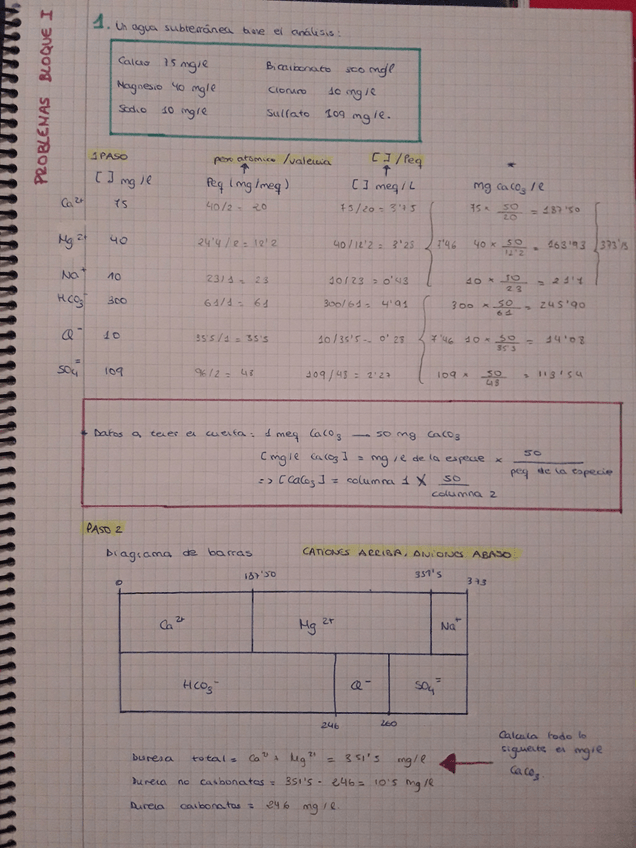 PROBLEMAS BLOQUE I
1. Un agua subterránea tiene el análisis:
Calcio 75 mg/l Bicarbonato 300 mg/l
Magnesio 40 mg/l Cloruro 10 mg/l
Sodio 10 mg/l Sulfato 109 mg/l.
1 PASO peso atomico/valencia [ ]/Peq *
[ ] mg/l Peq (mg/meq) [ ] meq/L mg CaCO3/l
Ca2+ 75 40/2 = 20 75/20 = 3'75 75 × 50/20 = 187'50
Mg2+ 40 24'4/2 = 12'2 40/12'2 = 3'28 7'46 40 × 50/12'2 = 163'93 373'13
Na+ 10 23/1 = 23 10/23 = 0'43 10 × 50/23 = 21'7
HCO3- 300 61/1 = 61 300/61 = 4'91 300 × 50/61 = 245'90
Cl- 10 35'5/1 = 35'5 10/35'5 = 0'28 7'46 10 × 50/35'5 = 14'08
SO4= 109 96/2 = 48 109/48 = 2'27 109 × 50/48 = 113'54
* Datos a tener en cuenta: 1 meq CaCO3 — 50 mg CaCO3
[mg/l CaCO3] = mg/l de la especie × 50/peq de la especie
=> [CaCO3] = columna 1 × 50/columna 2
PASO 2
Diagrama de barras CATIONES ARRIBA, ANIONES ABAJO
0 187'50 351'5 373
Ca2+ Mg2+ Na+
HCO3- Cl- SO4=
246 260
Dureza total = Ca2+ + Mg2+ = 351'5 mg/l
Dureza no carbonatos = 351'5 - 246 = 10'5 mg/l
Dureza carbonatos = 246 mg/l
Calcula todo lo
siguiente en mg/l
CaCO3.